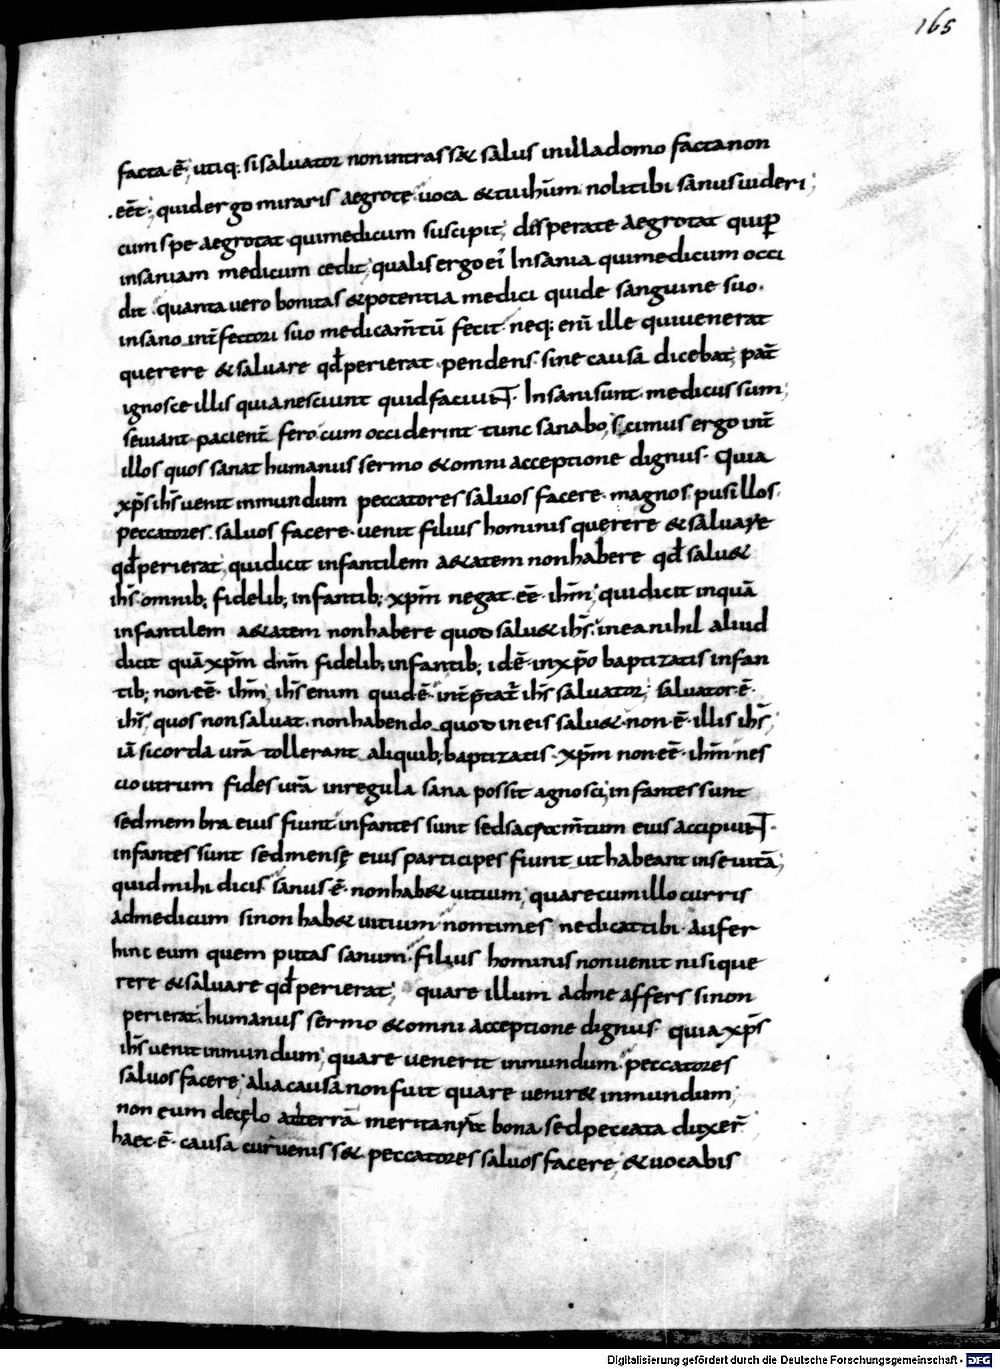 165
facta ē; utiq; si saluator non intrass& salus in illa domo facta non
eēt; quid ergo miraris aegrote uoca & tu ihūm noli tibi sanus uideri;
cum spe aegrotat qui medicum suscipit; disperate aegrotat qui ꝑ
insaniam medicum cedit; qualis ergo ei' Insania qui medicum occi
dit quanta uero bonitas & potentia medici qui de sanguine suo.
insano int̄fectori suo medicam̄tū fecit. neq; enī ille qui uenerat
querere & saluare qđ perierat. pendens. sine causā dicebat; pat̄
ignosce illis quia nesciunt quid faciuNT. Insani sunt. medicus sum;
seuiant. pacient̄ fero. cum occiderint tunc sanabo; scimus ergo int̄
illos quos sanat humanus sermo & omni acceptione dignus. Quia
xp̄s ihs̄ uenit in mundum peccatores saluos facere. magnos. pusillos.
peccatores. saluos facere. uenit filius hominis querere & saluare
qđ perierat; qui dicit infantilem a&atem non habere qđ salu&
ihs̄. omnib; fidelib; infantib; xp̄m negat. eē. ihm̄; qui dicit inquā
infantilem a&atem non habere quod salu& ihs̄. in ea nihil aliud
dicit quā xp̄m dn̄m fidelib; infantib; id ē. in xp̄o baptizatis infan
tib; non. eē. ihm̄; ihs̄ enim quid ē. int̄p̄tat̄ ihs̄ saluator; saluator ē.
ihs̄; quos non saluat. non habendo quod in eis salu&. non. ē. illis ihs̄;
iā si corda urā tollerant aliquib; baptizatis. xp̄m non eē. ihm̄. nes
cio utrum fides urā in regula sana possit agnosci; infantes sunt
sed membra eius fiunt infantes sunt sed sacram̄tum eius accipiuNT.
infantes sunt sed mensę eius participes fiunt ut habeant in se uitā;
quid mihi dicis sanus ē. non hab& uitium; quare cum illo curris
ad medicum si non hab& uitium. non times ne dicat tibi. Aufer
hinc eum quem putas sanum. filius hominis non uenit nisi que
rere & saluare qđ perierat; quare illum ad me affers si non
perierat. humanus sermo & omni acceptione dignus. quia xp̄s
ihs̄ uenit in mundum; quare uenerit in mundum. peccatores
saluos facere; alia causa non fuit quare uenir& in mundum;
non eum de cęlo ad terrā merita nr̄a bona. sed peccata duxer̄
haec ē. causa cur ueniss& peccatores saluos facere; & uocabis
Digitalisierung gefördert durch die Deutsche Forschungsgemeinschaft - DFG